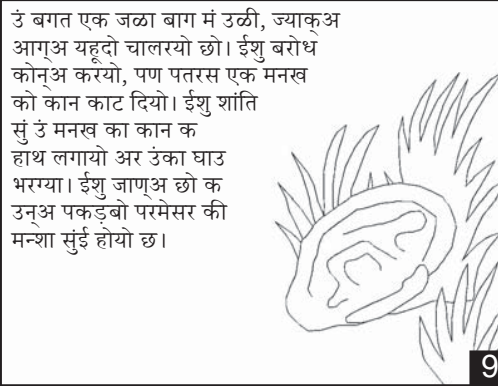 उं बगत एक जळा बाग मं उळी, ज्याक्अ
आग्अ यहूदो चालरयो छो। ईशु बरोध
कोन्अ करयो, पण पतरस एक मनख
को कान काट दियो। ईशु शांति
सुं उं मनख का कान क
हाथ लगायो अर उंका घाउ
भरग्या। ईशु जाण्अ छो क
उन्अ पकड़बो परमेसर की
मन्शा सुंई होयो छ।
9